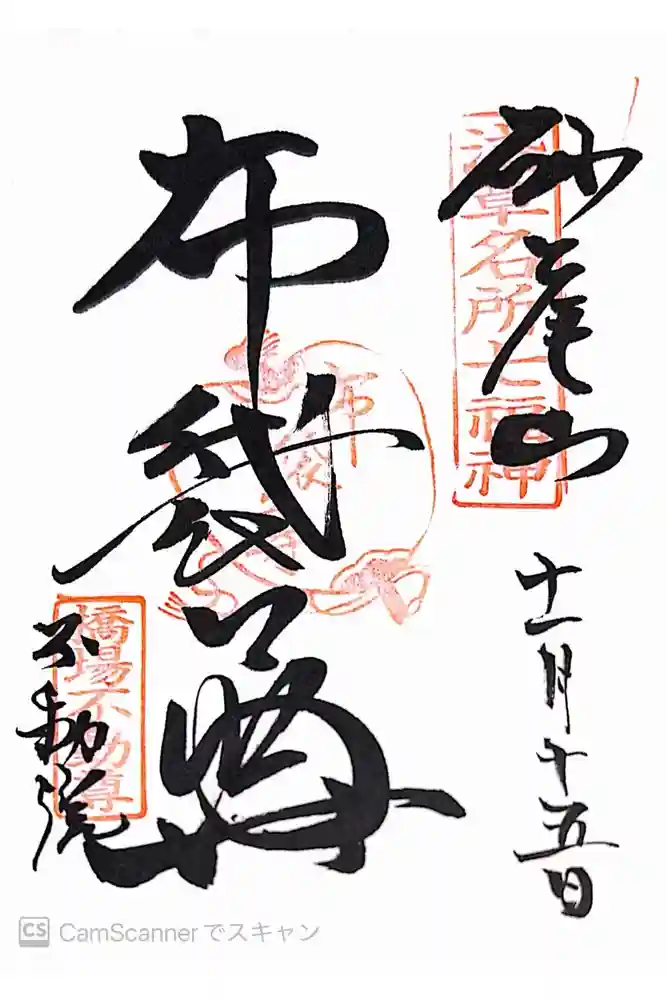 砂尾山
浅草名所七福神
十一月十五日
布袋尊
布袋尊
不動院
橋場不動尊
CS CamScannerでスキャン